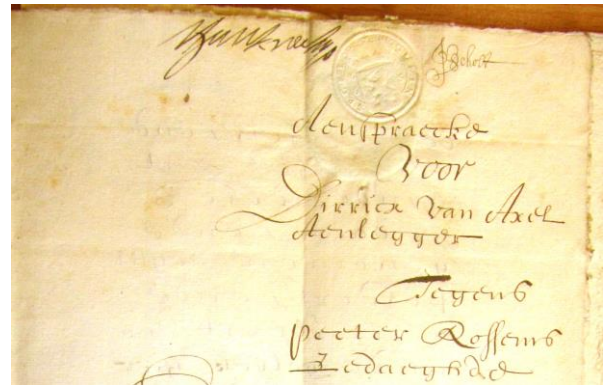 Aenspraecke
Voor
Dirrick van Axel
Aenlegger
Tegens
Peeter Rossems
Gedaeghde